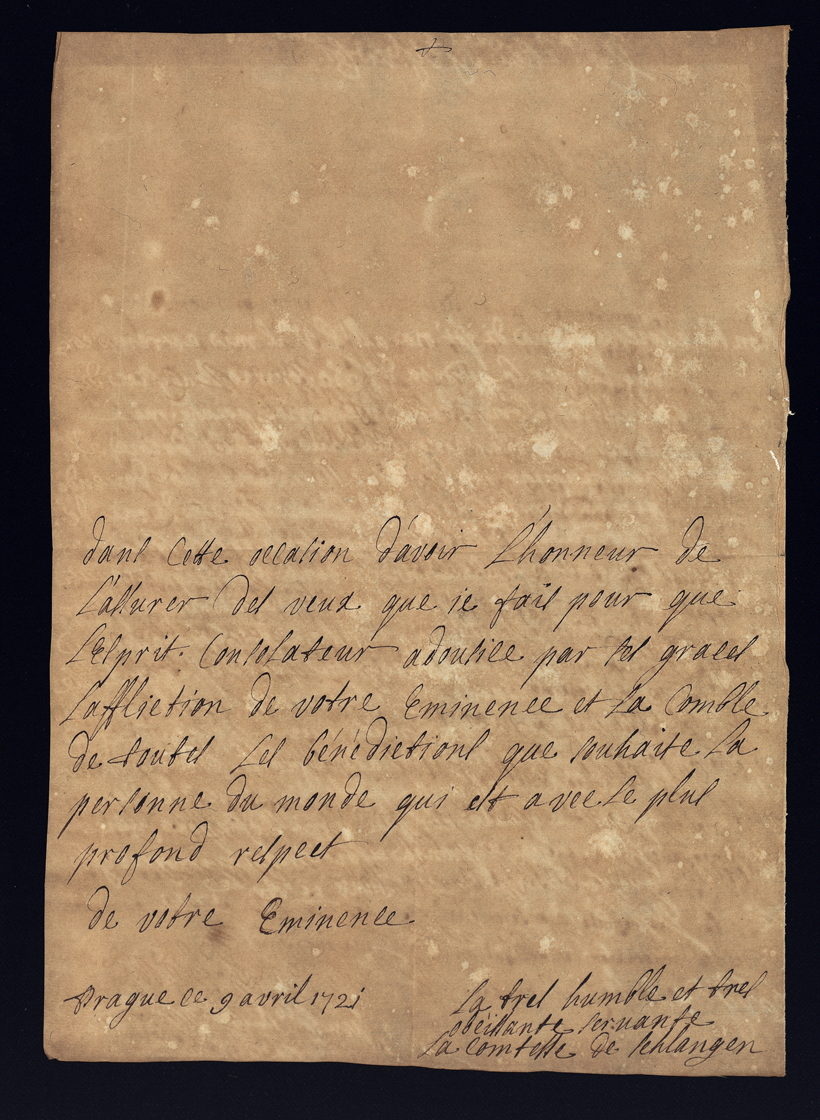 dans cette occasion d'avoir L'honneur de
L'assurer des veux que ie fais pour que
L'Esprit Consolateur adousice par ses graces
L'affliction de votre Eminence et La Comble
de toutes Les bénédictions que souhaite La
personne du monde qui est avec Le plus
profond respect
de votre Eminence
Prague ce 9 avril 1721
La tres humble et tres
obéissante servante
La comtesse de schlangen